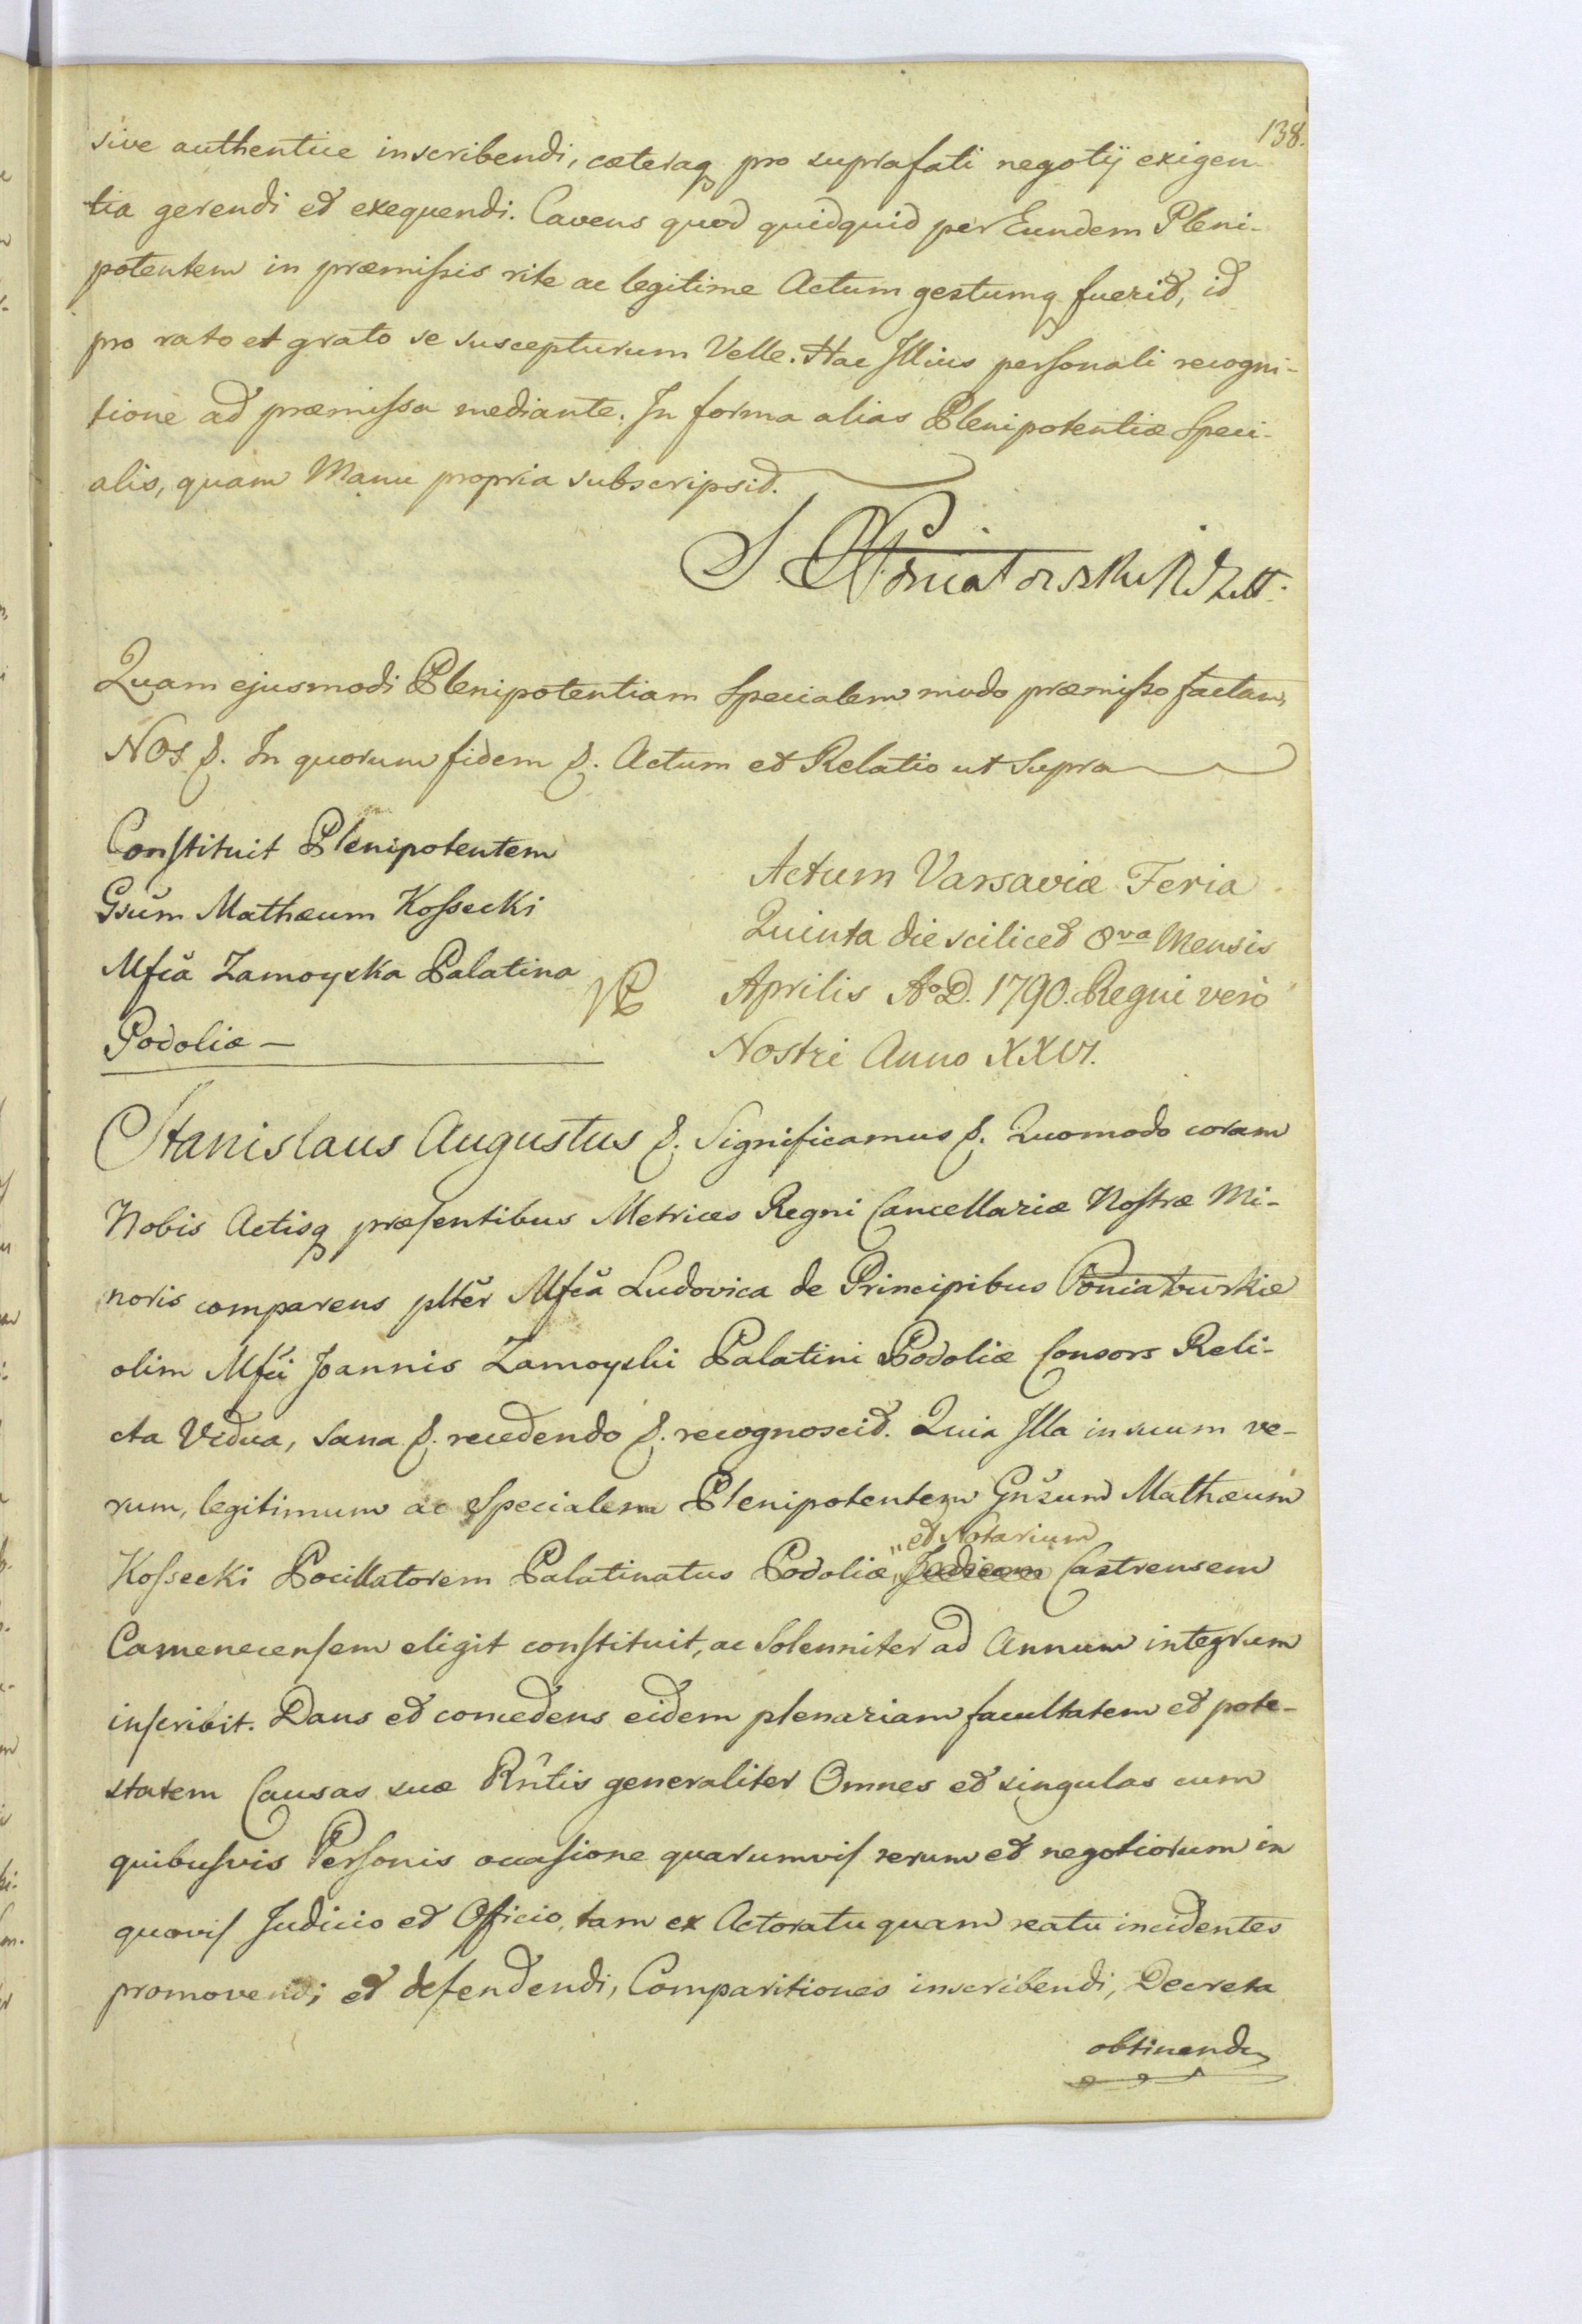 138.
sive authentice inscribendi, cæteraq pro suprafati negotij exigen-
tia gerendi et exequendi. Cavens quod quidquid per Eundem Pleni-
potentem in præmissis rite ac legitime Actum gestumq fuerit, id
pro rato et grato se suscepturum Velle. Hac Illius personali recogni-
tione ad præmissa mediante. In forma alias Plenipotentiæ Speci-
alis, quam Manu propria subscripsit.
Quam ejusmodi Plenipotentiam Specialem modo præmisso factam,
NOS &. In quorum fidem &. Actum et Relatio ut Supra
Constituit Plenipotentem
Gsum Mathæum Kossecki
Mfca Zamoyska Palatina
Podoliæ —
Actum Varsaviæ Feria
Quinta die scilicet 8va Mensis
Aprilis Ao D. 1790. Regni vero
Nostri Anno XXVI.
Stanislaus Augustus &. Significamus &. Quomodo coram
Nobis Actisq præsentibus Metrices Regni Cancellariæ Nostræ Mi-
noris comparens plter Mfca Ludovica de Principibus Poniatowskie
olim Mfci Joannis Zamoyski Palatini Podoliæ Consors Reli-
cta Vidua, sana &. recedendo &. recognoscit. Quia Illa in suum ve-
rum, legitimum ac Specialem Plenipotentem Gnsum Mathæum
et Notarium
Kossecki Pocillatorem Palatinatus Podoliæ, Judicem Castrensem
Camenecensem eligit constituit, ac Solenniter ad Annum integrum
inscribit. Dans et concedens eidem plenariam facultatem et pote-
statem Causas suæ Rntis generaliter Omnes et singulas cum
quibusvis Personis occasione quarumvis rerum et negotiorum in
quovis Judicio et Officio, tam ex Actoratu quam reatu incidentes
promovendi et defendendi, Comparitiones inscribendi, Decreta
obtinendi